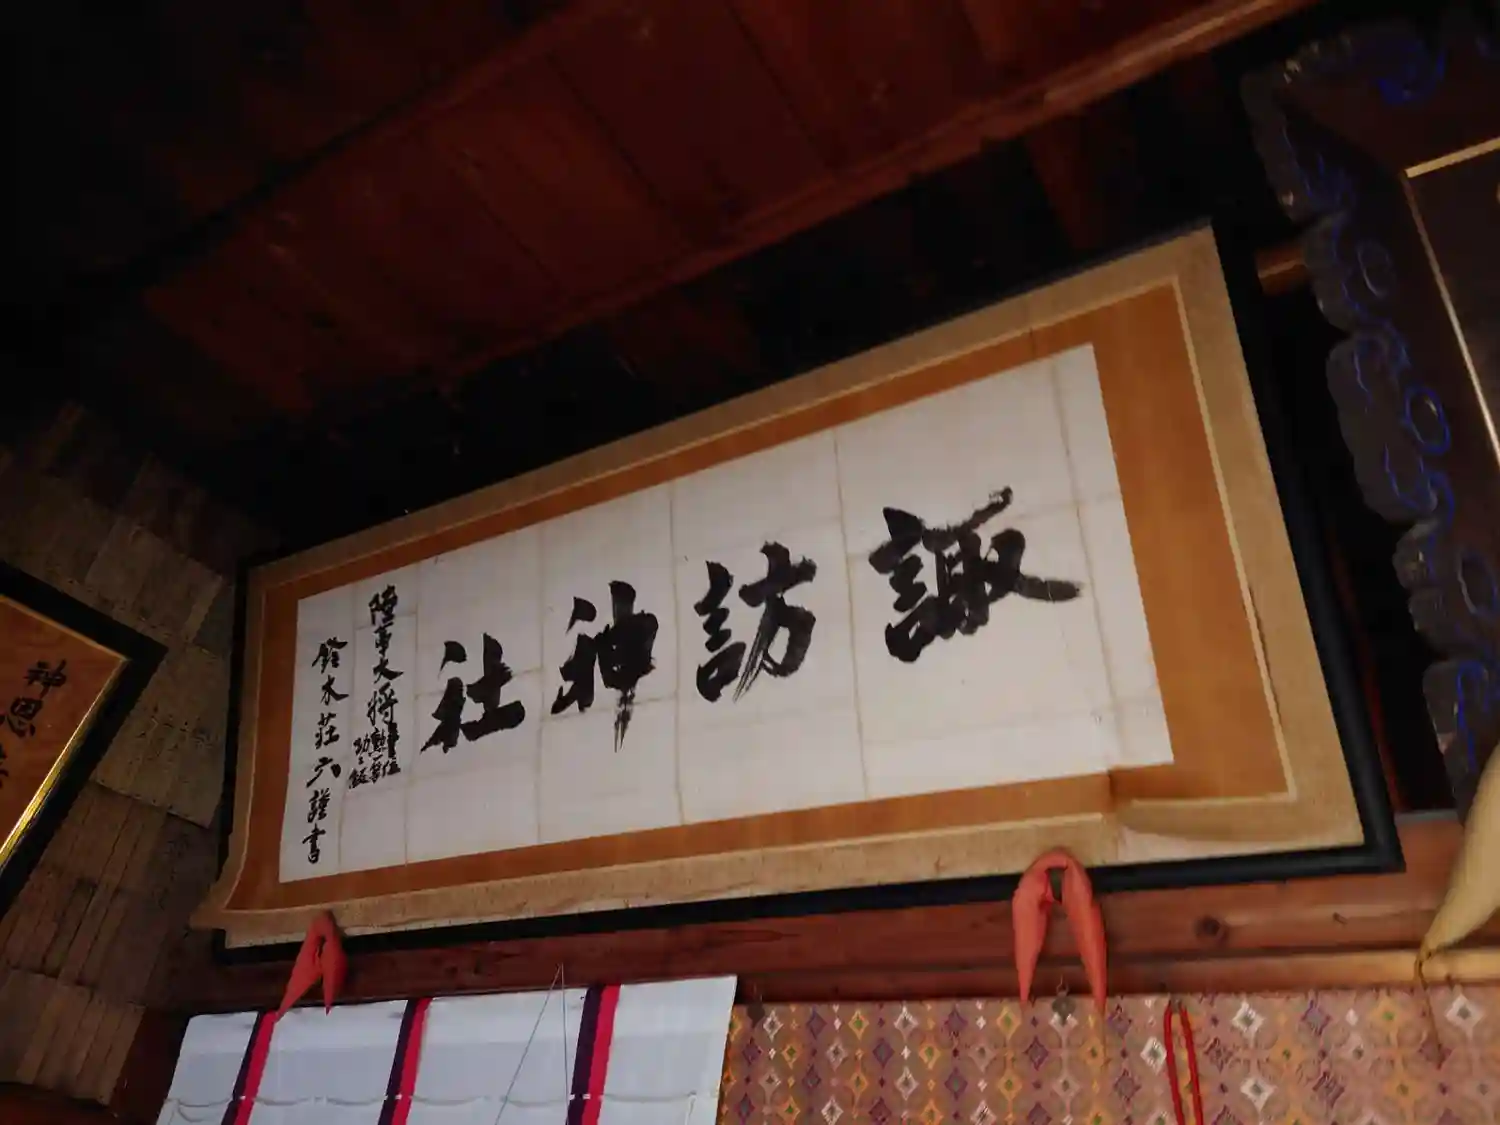 諏訪神社
陸軍大将
勲一等
功三級
鈴木荘六謹書
神恩